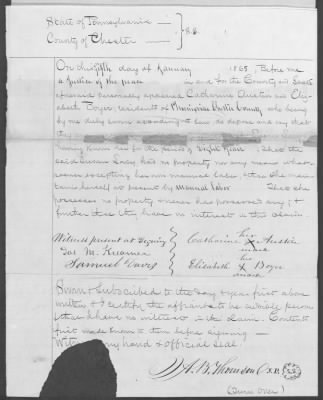 State of Pennsylvania
County of Chester } S.S.
On this fifth day of January 1865 Before me
a Justice of the peace in and for the County and State
aforesaid personally appeared Catharine Austin and Eliz
abeth Boyer residents of Chester County who being
by me duly sworn according to law do depose and say that
they
having known her for the period of Eight Years That the
said Susan Lacy has no property nor any means what
soever excepting her own manual labor that she main
tains herself at present by manual labor That she
possesses no property &
further that they have no interest in this claim.
Witness present at signing
Jas. M. Kreamer
Samuel Davis
Catharine her X mark Austin
Elizabeth her X mark Boyer
Sworn & Subscribed to the day & year first above
written & I certify the affiants to be credible persons
& that I have no interest in the claim. Contents
first made known to them before signing
Witness my hand & official Seal.
Thomson J.P.
(Turn Over)